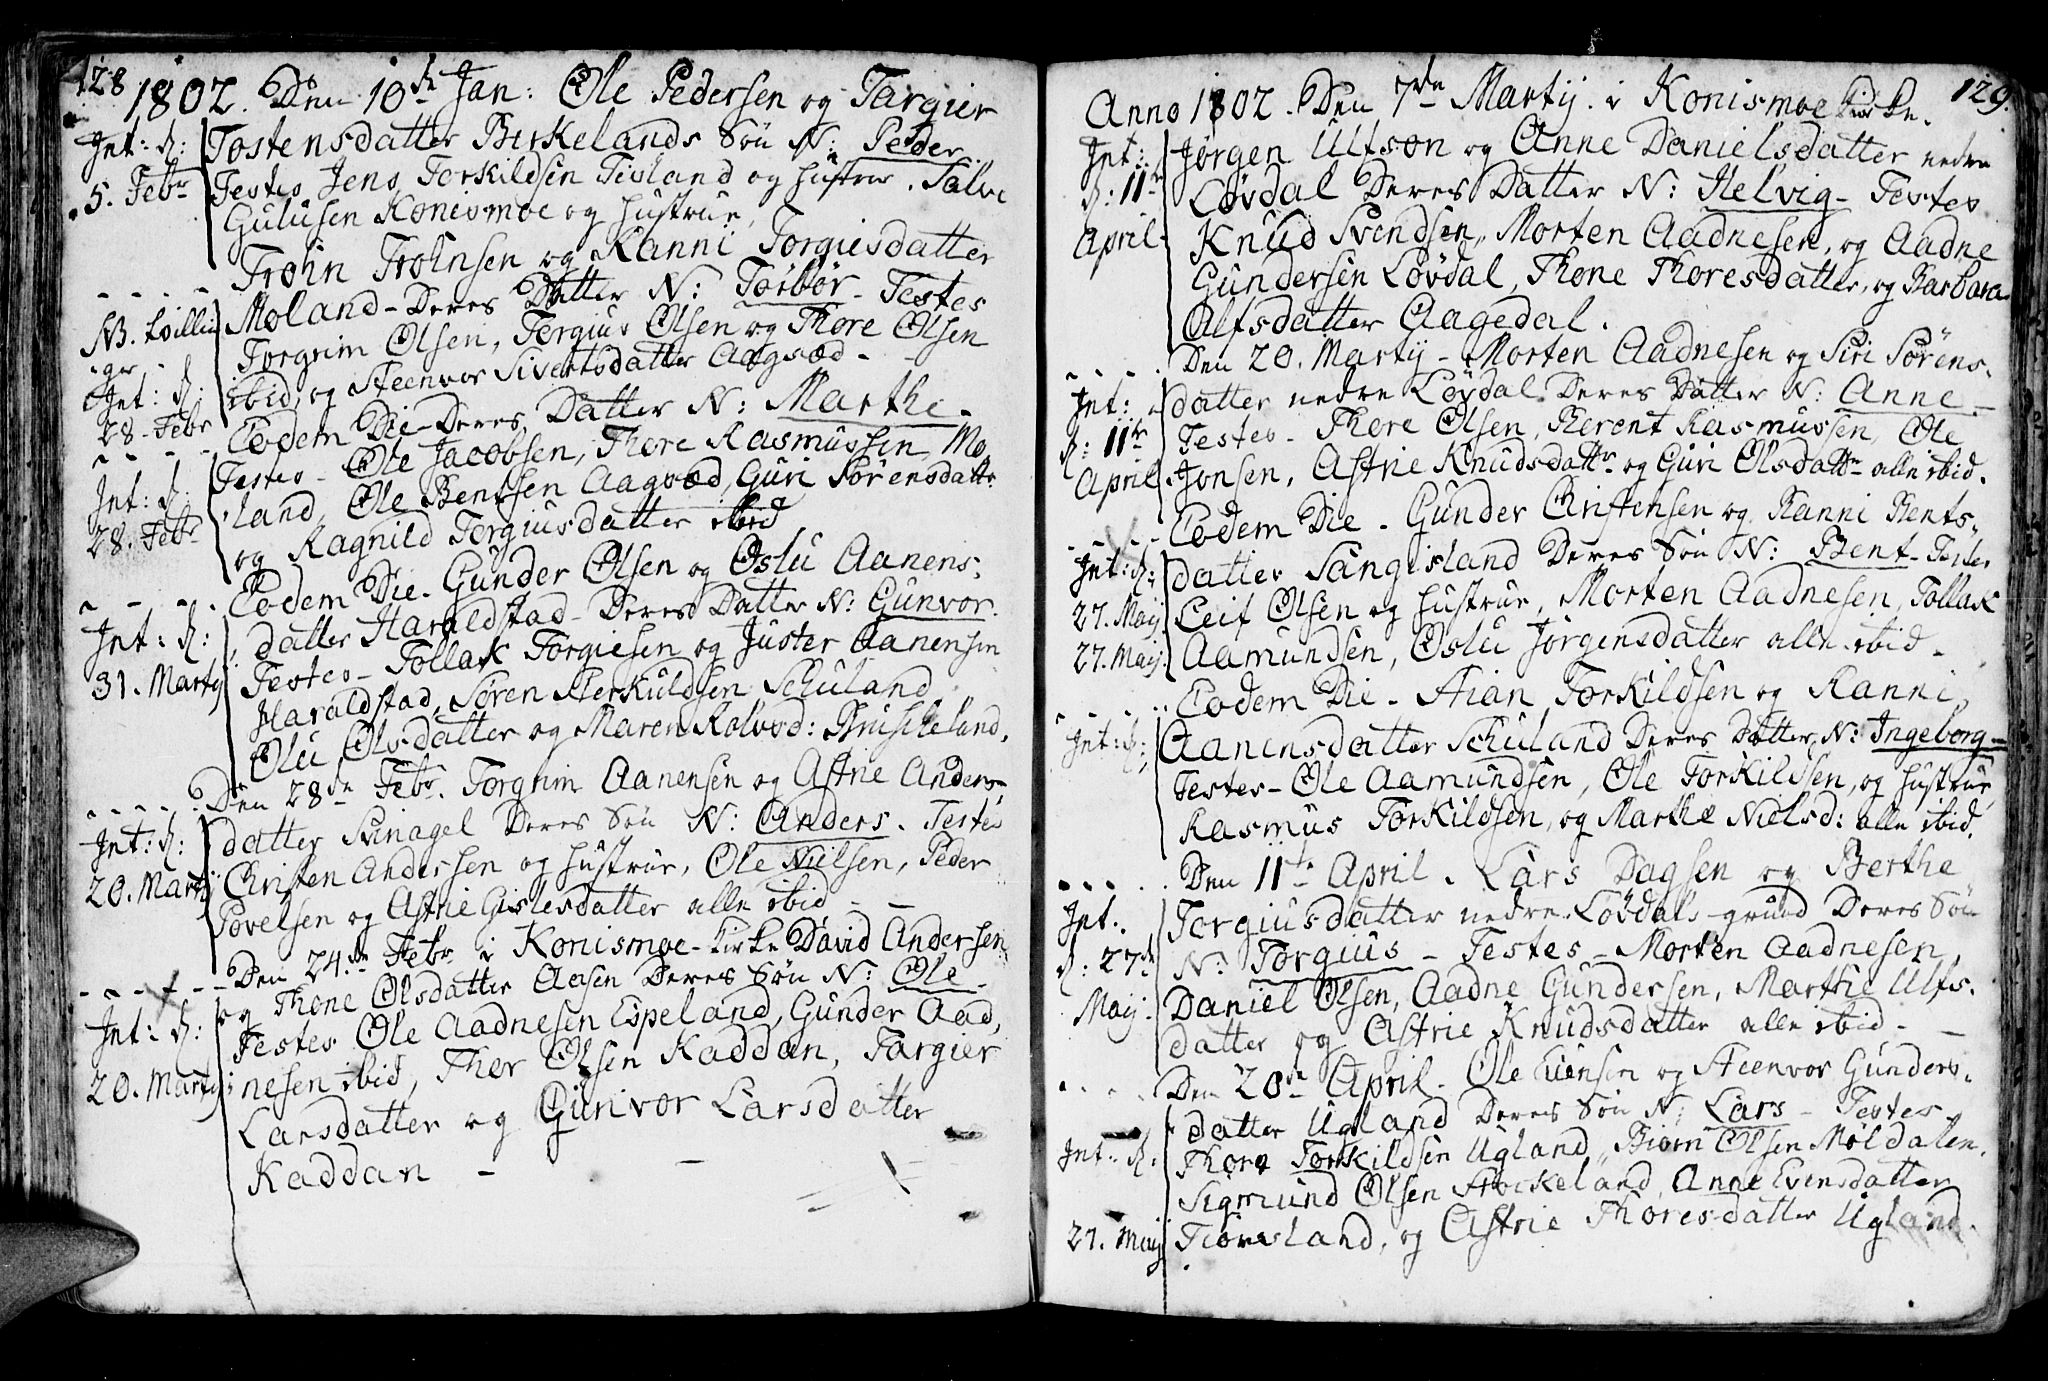 128
1802. Den 10de Jan: Ole Pedersen og Targier
Int: d: Tostensdatter Birkelands Søn N: Peder.
5. Febr Testes Jens Torkildsen Tisland og hustrue, Salve
Gulusen Konismoe og hustrue,
Trohn Trohnsen og Ranni Torgiesdatter
NB. Tvillin Moland - Deres Datter N: Torbør - Testes
ger Torgrim Olsen, Torgius Olsen og Thore Olsen
Int: d: ibid, og Steenvor Sivertsdatter Aagsæd -
28. Febr Eodem Die - Deres Datter N: Marthe -
Int: d: Testes - Ole Jacobsen, Thore Rasmussen Mo,
land, Ole Bentsen Aagsæd, Guri Sørensdattr
28. Febr og Ragnild Torgiusdatter ibid
Eodem Die - Gunder Olsen og Oslu Aanens,
Int: d: datter Haraldstad - Deres Datter N: Gunvor.
31. Martij Testes - Tollak Torgiesen og Juster Aanensen
Haraldstad, Søren Sterkuldsen Schuland,
Olu Olsdatter og Maren Rolvsd:
Den 28de Febr. Torgrim Aanensen og Astrie Anders,
Int: d: datter Svinagel Deres Søn N: Anders. Testes
20. Martij Christen Andersen og hustrue, Ole Nielsen, Peder
Povelsen og Astrie Gislesdatter alle ibid -
Den 24de Febr i Konismoe - Kirke David Andersen
Int: d: og Thone Olsdatter Aasen Deres Søn N: Ole -
Testes Ole Aadnesen Espeland, Gunder Aad,
20. Martij nesen ibid, Thor Olsen Kaddan, Targier
Larsdatter og Gunvor Larsdatter
Kaddan -
129.
Anno 1802. Den 7de Martij. i Konismoe Kirke.
Int: Jørgen Ulfson og Anne Danielsdatter nedre
d: 11te Løvdal Deres Datter N: Helvig - Testes
April. Knud Svendsen, Morten Aadnesen, og Aadne
Gundersen Løvdal, Thone Thoresdatter, og Barbara
Alfsdatter Aagedal.
Den 20. Martij - Morten Aadnesen og Siri Sørens,
Int: datter nedre Løvdal Deres Datter N: Anne -
d: 11te Testes - Thore Olsen, Berent Rasmussen, Ole
April. Jonsen, Astrie Knudsdattr og Guri Olsdattr alle ibid.
Eodem Die - Gunder Christensen og Ranni Bents,
Int: d: datter Sangisland Deres Søn N: Bent - Testes
27. Maij Leif Olsen og hustrue, Morten Aadnesen, Tollak
27. Maij. Aamundsen, Oslu Jørgensdatter alle ibid -
Eodem Die - Torkildsen og Ranni
Int: d: Aanensdatter Schuland Deres Datter N: Ingeborg -
Testes - Ole Aamundsen, Ole Torkildsen, og hustrue,
Rasmus Torkildsen, og Marthe Nielsd: alle ibid.
Den 11te April. Lars Dagsen og Berthe
Int: Torgiusdatter nedre Løvdals - grund Deres Søn
d: 27de N: Torgius - Testes - Morten Aadnesen
Maij. Daniel Olsen, Aadne Gundersen, Marthe Ulfs,
datter og Astrie Knudsdatter alle ibid -
Den 20de April. Ole Evensen og Steenvor Gunders,
datter Ugland Deres Søn N: Lars - Testes
Int: d: Thore Torkildsen Ugland, Biørn Olsen Møldalen,
Sigmund Olsen Stockeland, Anne Evensdatter
27. Maij Tiorisland, og Astrie Thoresdatter Ugland.